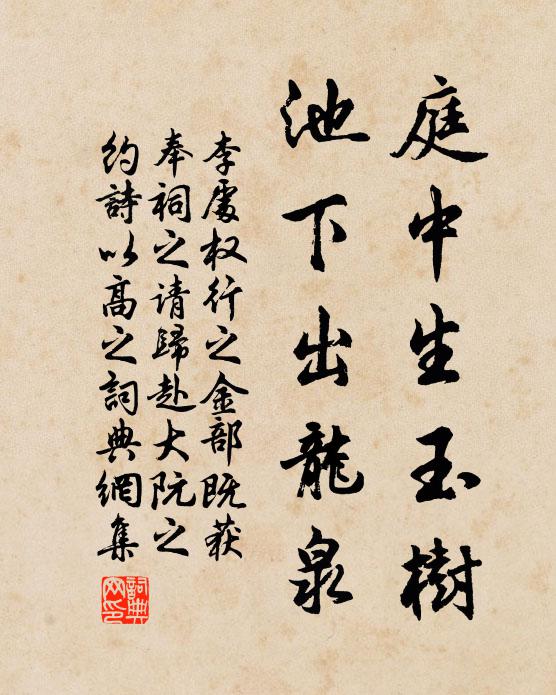 庭中生玉樹
池下出龍泉
李處权行之金部既获
奉祠之请歸赴大阮之
约詩以高之詞典網集
詞典
网印